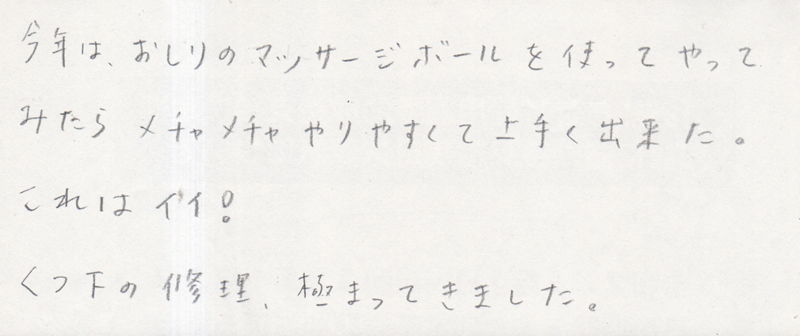 今年は、おしりのマッサージボールを使ってやって
みたらメチャメチャやりやすくて上手く出来た。
これはイイ!
くつ下の修理、極まってきました。